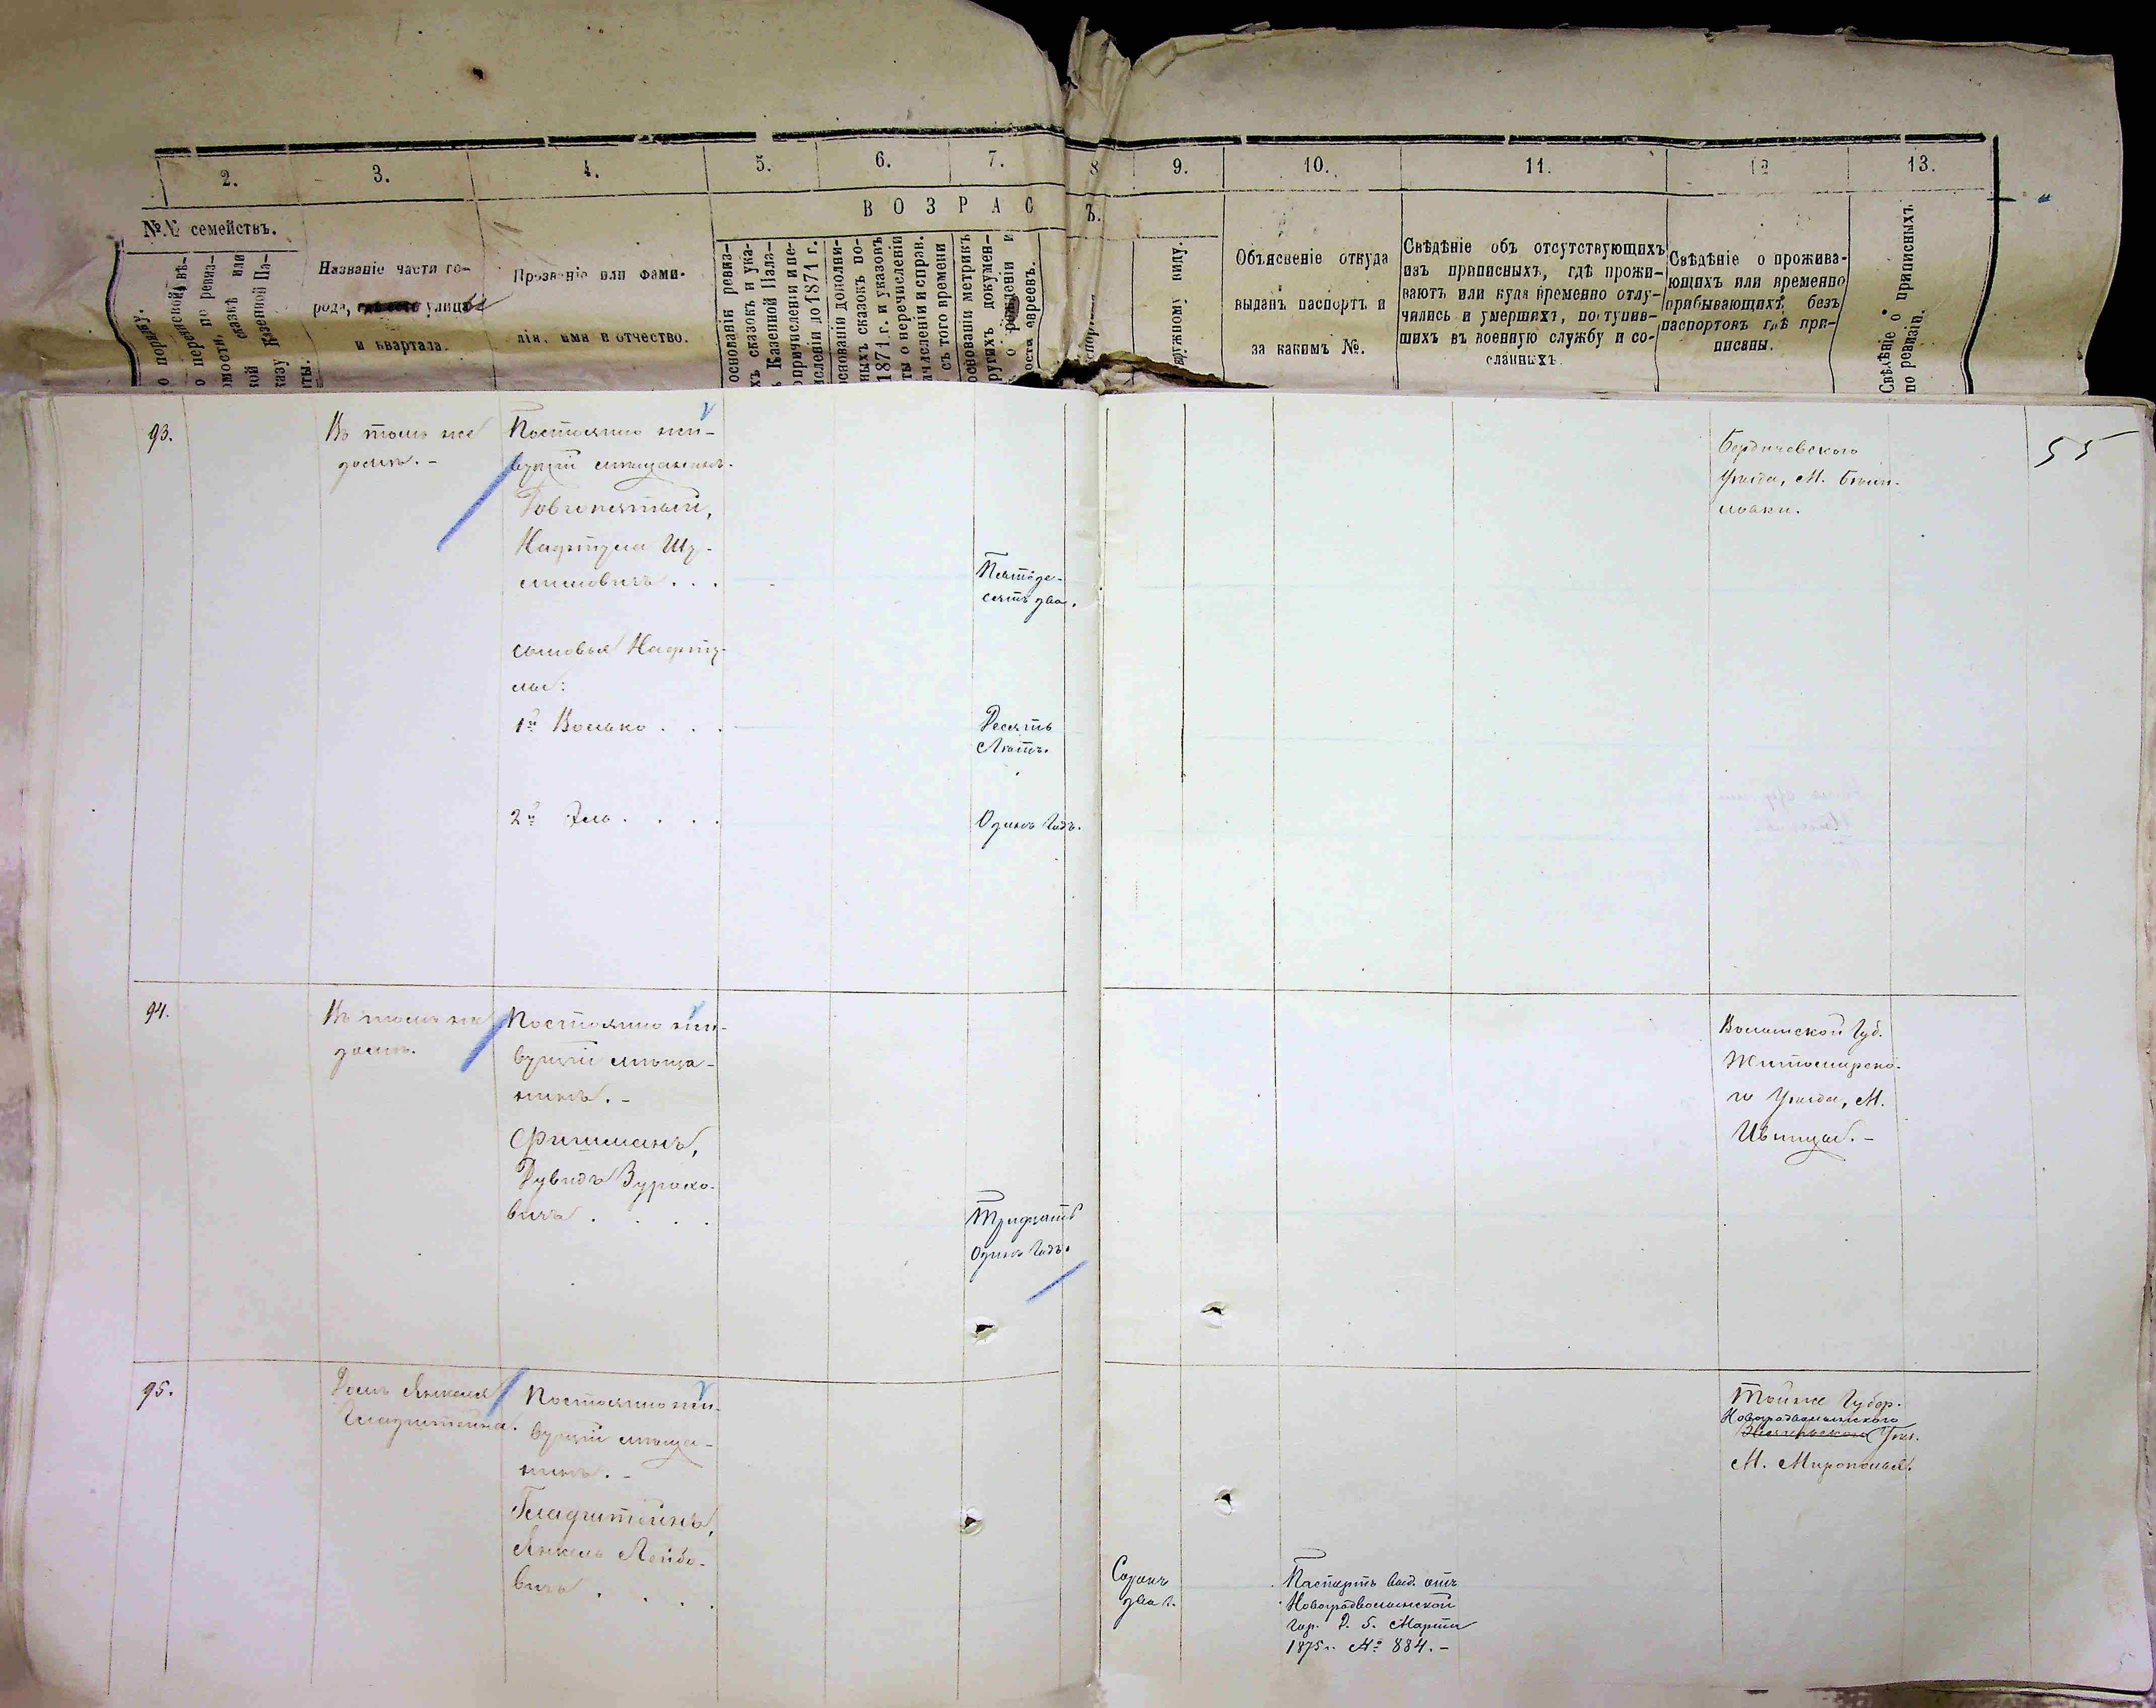 2.
3.
4.
5.
6.
7.
8
9.
10.
11.
12
13.
ВОЗРАС
Ъ.
№№ семействъ.
Названіе части го-
рода, улицы
и квартала.
Прозваніе или фами-
лія, имя и отчество.
Объясненіе откуда
выданъ паспортъ и
за какимъ №.
Свѣдѣніе объ отсутствующихъ
изъ приписныхъ, гдѣ прожи-
ваютъ или куда временно отлу-
чились и умершихъ, поступив-
шихъ въ военную службу и со-
сланныхъ.
Свѣдѣніе о прожива-
ющихъ или временно
прибывающихъ безъ
паспортовъ гдѣ при-
писаны.
Свѣдѣніе о приписныхъ
по ревизіи.
55
93.
Въ томъ же
домѣ. -
Постоянно жи-
вущій мѣщанинъ.
Нафтула Шу-
лимовичъ . . .
Пятьде-
сятъ два.
сыновья Нафту-
лы:
1й Волько . . .
Десять
Лѣтъ.
2й Эль . . . .
Одинъ Годъ.
Бердичевского
Уѣзда, М. Бѣли-
ловки.
94.
Въ томъ же
домѣ.
Постоянно жи-
вущій мѣща-
нинъ. -
Фишманъ,
Дувидъ Зурахо-
вичъ . . . .
Тридцать
Одинъ Годъ.
Волынской Губ.
Житомирско-
го Уѣзда, М.
Ивница. -
95.
Домъ Янкеля
Гладштейна.
Постоянно жи-
вущій мѣща-
нинъ. -
Гладштейнъ,
Янкель Лейбо-
вичъ . . . .
Сорокъ
два г.
Паспортъ выд. отъ
Новоградволынской
Гор. Д. 5. Марта
1875 г. № 884. -
Той же Губер.
Новоградволынского
Уѣз.
М. Мирополья.